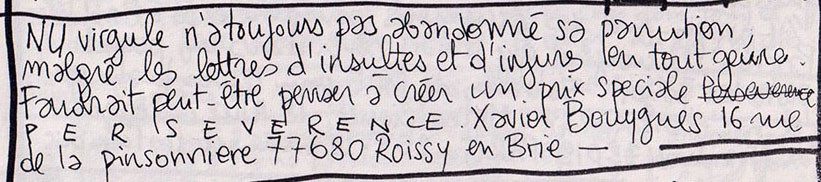 NU, virgule n'a toujours pas abandonné sa parution,
malgré les lettres d'insultes et d'injures en tout genre.
Faudrait peut-être penser à créer un prix speciale Perseverence
PERSEVERENCE. Xavier Bouygues 16 rue
de la pinsonniere 77680 Roissy en Brie —